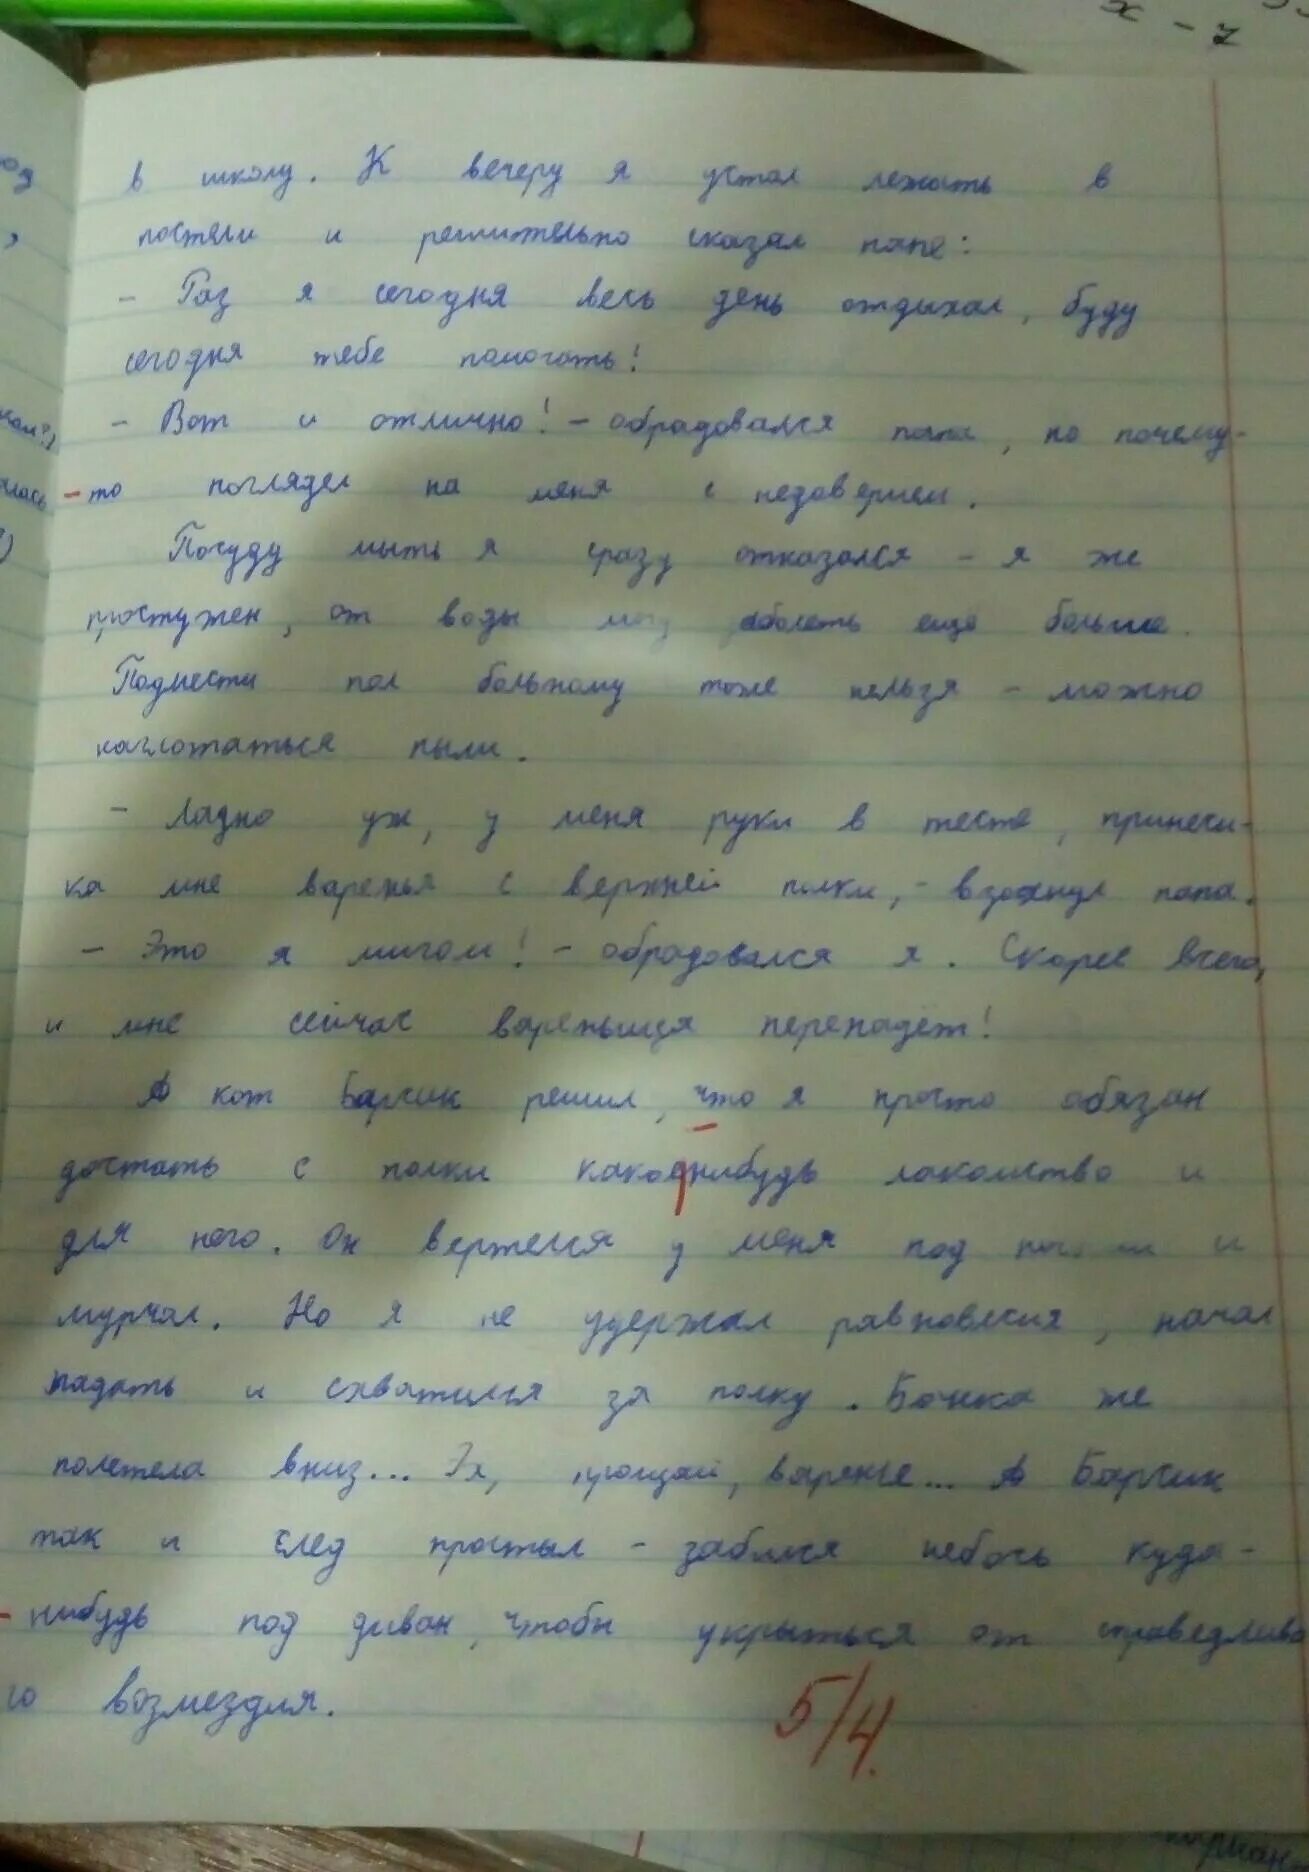 x - 7
в школу. К вечеру я устал лежать в
постели и решительно сказал папе:
- Раз я сегодня весь день отдыхал, буду
сегодня тебе помогать!
- Вот и отлично! - обрадовался папа, но почему-
-то поглядел на меня с недоверием.
Посуду мыть я сразу отказался - я же
простужен, от воды могу заболеть ещё больше.
Подмести пол больному тоже нельзя - можно
наглотаться пыли.
- Ладно уж, у меня руки в тесте, принеси-
ка мне варенья с верхней полки, - вздохнул папа.
- Это я мигом! - обрадовался я. Скорее всего,
и мне сейчас вареньица перепадёт!
А кот Барсик решил, что я просто обязан
достать с полки какоенибудь лакомство и
для него. Он вертелся у меня под и
мурчал. Но я не удержал равновесия, начал
падать и схватился за полку. Банка же
полетела вниз... Эх, прощай, варенье... А Барсик
так и след простыл - забился небось куда-
-нибудь под диван, чтобы укрыться от справедливо
го возмездия.
5/4.